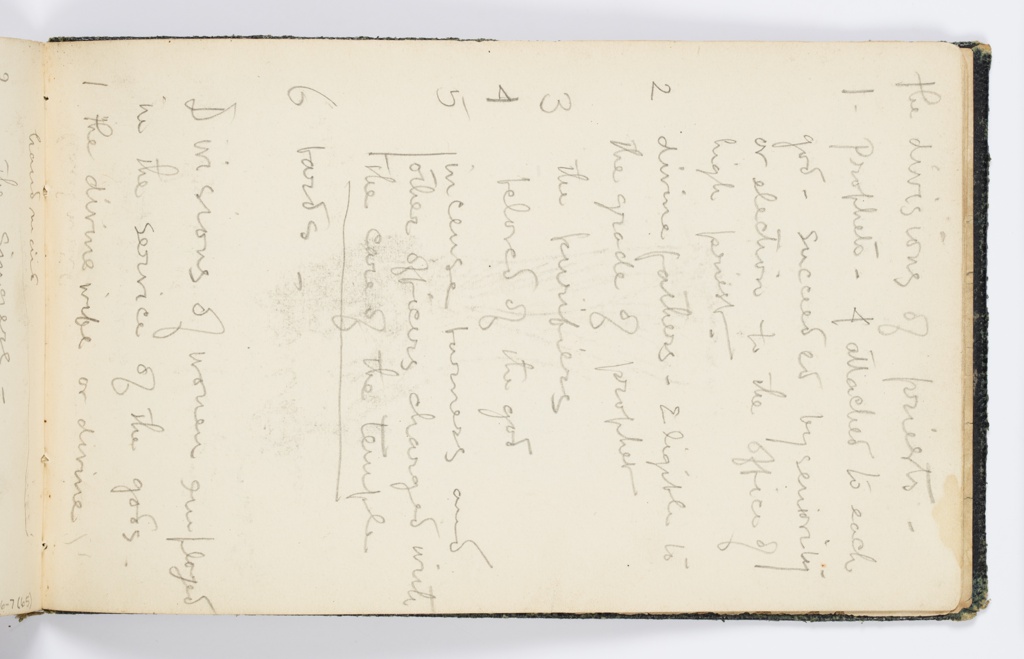 the divisions of priests -
1 - Prophets - 4 attached to each
god - succeeded by seniority
or election to the office of
high priest -
2 divine fathers - Eligible to
the grade of prophet
3 the purifiers
4 beloved of the god
5 incense burners and
other officers charged with
the care of the temple
6 bards -
Divisions of women employed
in the service of the gods.
1 the divine wife or divine
The Singers -
6-7 (65)